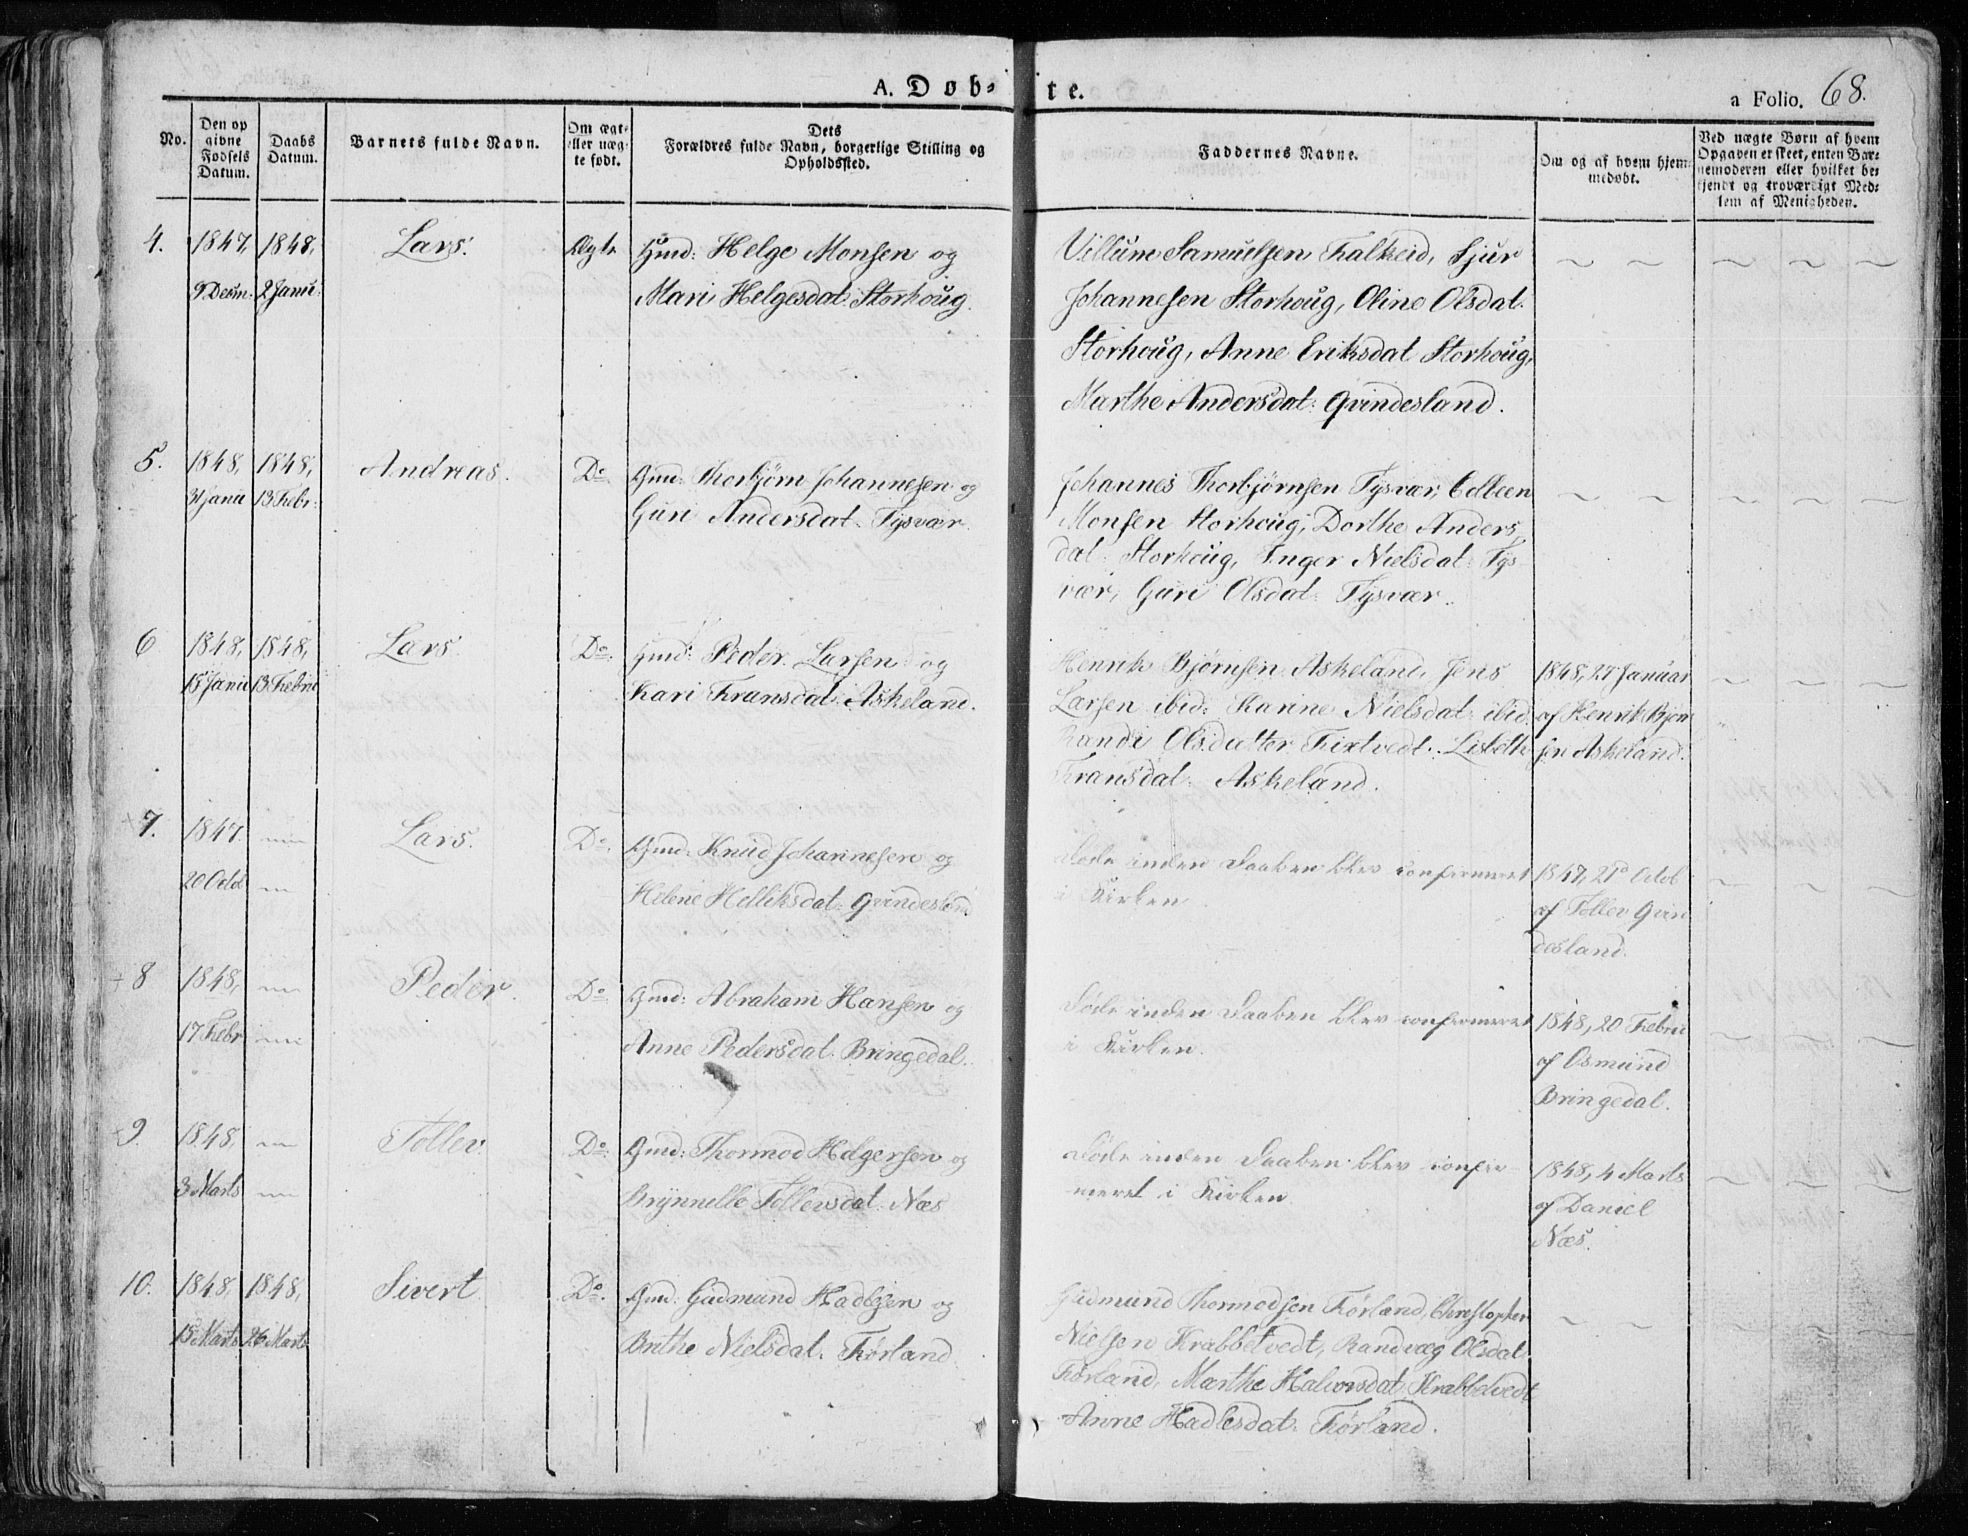 A. Døb- te.
a Folio. 68.
No.
Den op
givne
Fødsels
Datum.
Daabs
Datum.
Barnets fulde Navn.
Om ægt-
eller uæg-
te født.
Dets
Forældres fulde Navn, borgerlige Stilling og
Opholdssted.
Faddernes Navne.
Om og af hvem hjem-
medøbt.
Ved uægte Børn af hvem
Opgaven er skeet, enten Bar-
nemoderen eller hvilket be-
kjendt og troværdigt Med-
lem af Menigheden.
4. 1847, 1848, Lars. Ægte Gmd: Helge Monsen og
9 Decm: 2 Janu: Mari Helgesdat: Storhoug.
Villum Samuelsen Falkeid, Sjur
Johannesen Storhoug, Oline Olsdat:
Storhoug, Anne Eriksdat Storhoug,
Marthe Andersdat: Qvindesland.
5. 1848, 1848, Andreas. Do Gmd: Thorbjørn Johannesen og
31 Janu 13 Febr: Guri Andersdat: Tysvær
Johannes Thorbjørnsen Tysvær,
Monsen Storhoug, Dorthe Anders
dat: Storhoug, Inger Nielsdat: Tys
vær, Guri Olsdat: Tysvær.
6 1848, 1848, Lars. Do Gmd: Peder Larsen og
15 Janu 13 Febru Kari Fransdat: Askeland.
Henrik Bjørnsen Askeland, Jens
Larsen ibid: Karine Nielsdat: ibid.
Randi Olsdatter Lisbeth
Fransdat: Askeland.
1848, 27 Januar
af Henrik Bjørn
sen Askeland.
7. 1847. Lars. Do. Gmd: Knud Johannesen og
20 Octob Helene Helliksdat: Qvindesland
Døde inden Daaben blev confirmeret
i Kirken
1847, 21d Octob
af Tollev Qvin
desland.
8 1848, Peder. Do Gmd: Abraham Hansen og
17 Febr Anne Pedersdat: Bringedal.
Døde inden Daaben blev confirmeret
i Kirken.
1848, 20 Febru
af Osmund
Bringedal.
9. 1848, Tollev. Do. Gmd: Thormod Helgersen og
3 Marts Brynnelle Tollevsdat: Næs
Døde inden Daaben blev confir-
meret i Kirken.
1848, 4 Marts
af Daniel
Næs.
10. 1848, 1848, Sivert. Do. Gmd: Gudmund Hadlesen og
15 Marts 26 Marts Brithe Nielsdat: Førland
Gudmund Thormodsen Førland, Christopher
Nielsen Krabbetvedt, Randvæg Olsdat:
Førland, Marthe Halvorsdat: Krabbetvedt
Anne Hadlesdat: Førland.